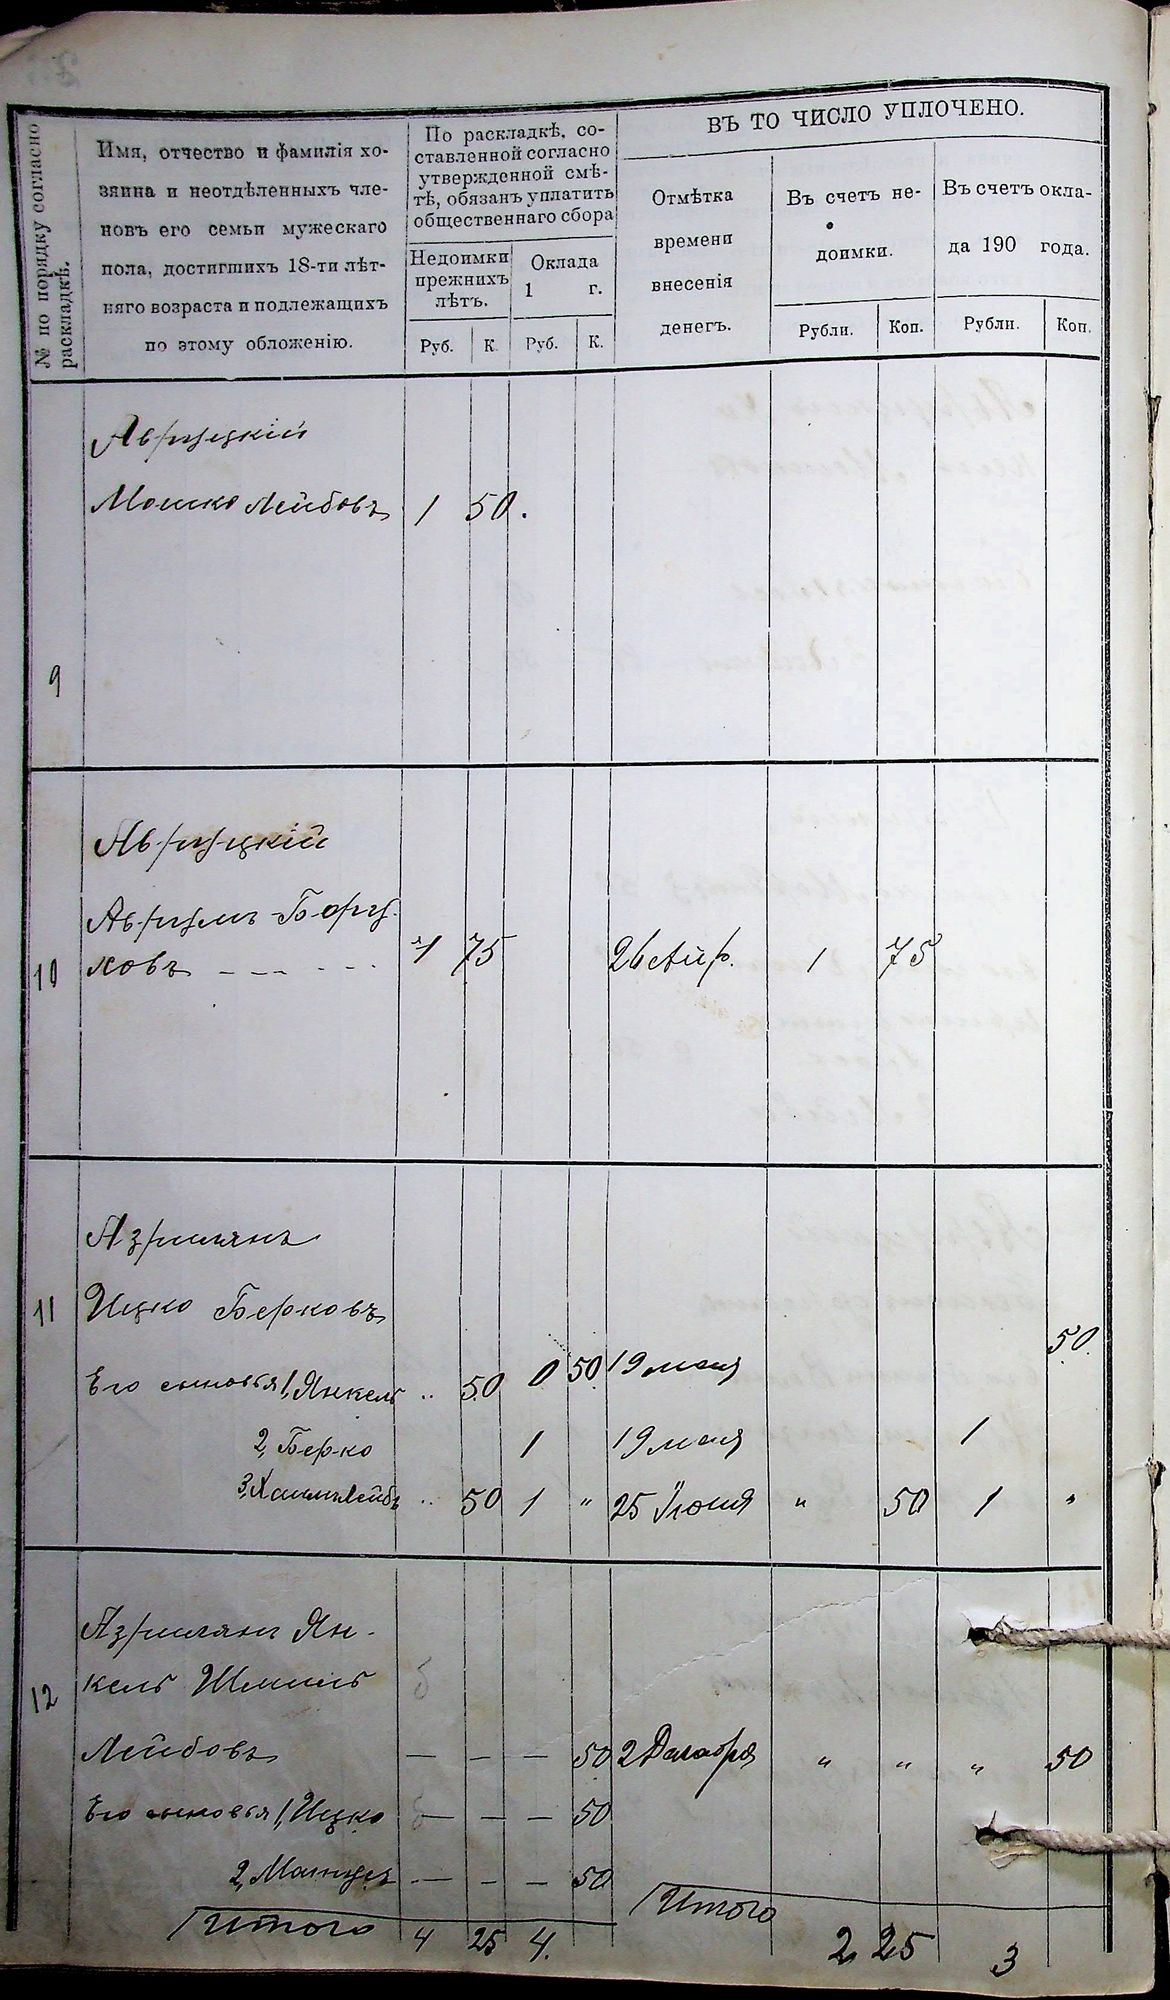 № по порядку согласно
раскладкѣ.
Имя, отчество и фамилія хо-
зяина и неотдѣленныхъ чле-
новъ его семьи мужескаго
пола, достигшихъ 18-ти лѣт-
няго возраста и подлежащихъ
по этому обложенію.
По раскладкѣ, со-
ставленной согласно
утвержденной смѣ-
тѣ, обязанъ уплатить
общественнаго сбора
Недоимки
прежнихъ
лѣтъ.
Оклада
1 г.
Руб. К. Руб. К.
ВЪ ТО ЧИСЛО УПЛОЧЕНО.
Отмѣтка
времени
внесенія
денегъ.
Въ счетъ не-
доимки.
Въ счетъ окла-
да 190 года.
Рубли. Коп. Рубли. Коп.
Авруцкій
Мошко Лейбовъ 1 50.
9
Авруцкій
Аврумъ Бору-
10 ховъ - - - - - 1 75 26 Апр. 1 75
Азрилянъ
11 Ицко Берковъ
Его сыновья 1, Янкель .. 50 0 50 19 мая 50
2, Берко 1 19 мая 1
3, Хаимъ Лейбъ .. 50 1 " 25 Іюня " 50 1 "
Азрилянъ Ян-
12 кель Шмиль
Лейбовъ — — — 50 2 Декабря " " " 50
Его сыновья 1, Ицко — — — 50
2, — — — 50
Итого 4 25 4. Итого 2 25 3